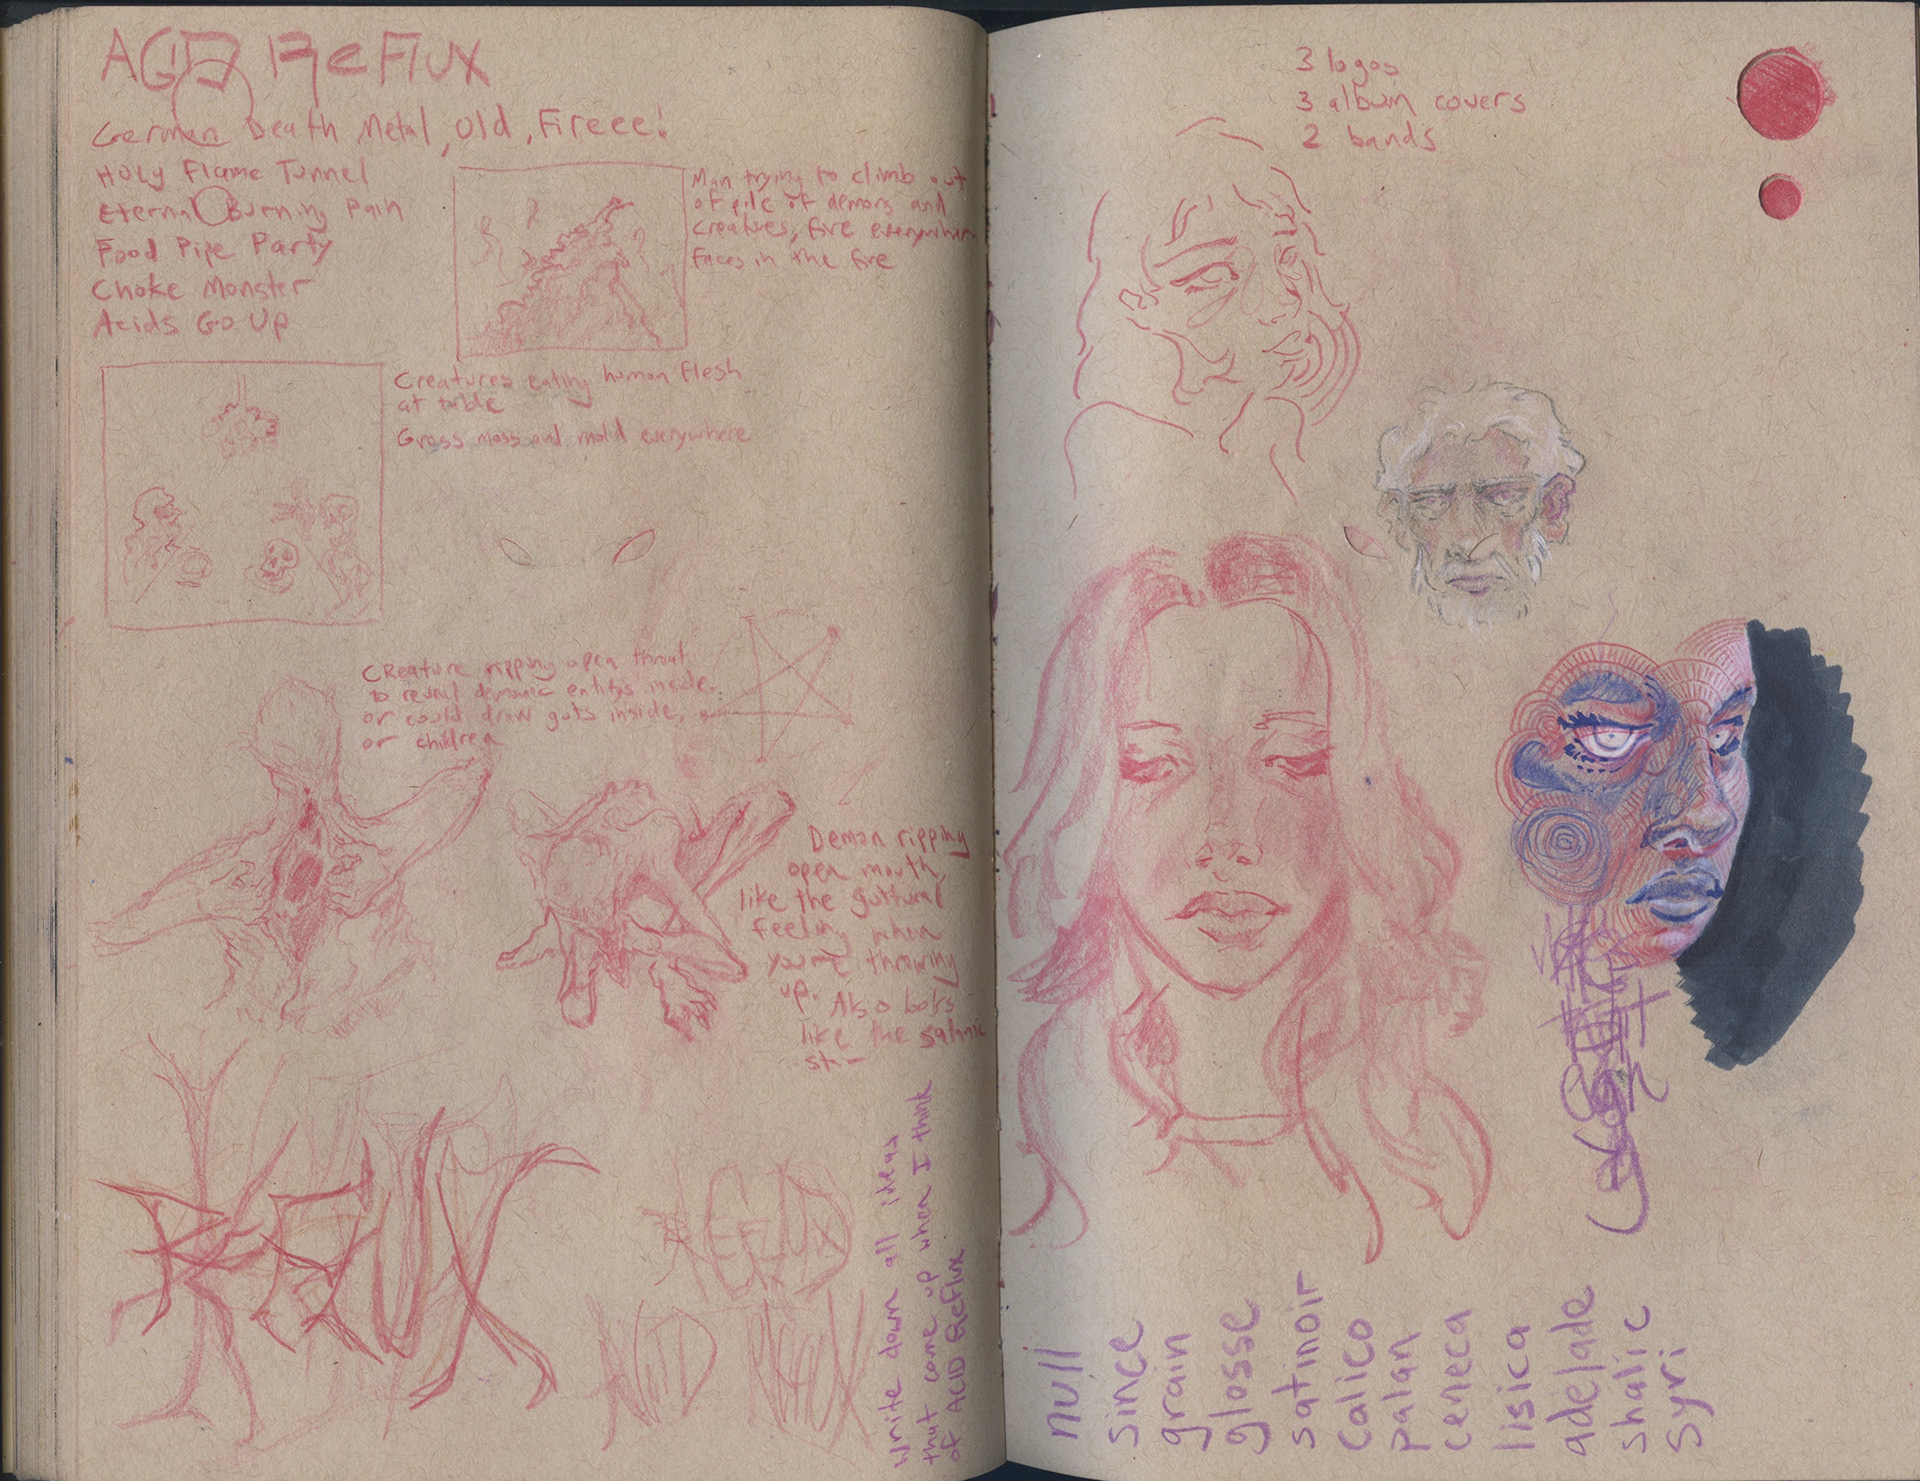 ACID ReFlux
German Death Metal, Old, Fireee!
Holy Flame Tunnel
Eternal Burning Pain
Food Pipe Party
Choke Monster
Acids Go Up
Man trying to climb out
of pile of demons and
creatures, fire everywhere
Faces in the fire
Creatures eating human flesh
at table
Gross moss and mold everywhere
Creature ripping open throat
to reveal demonic entitys inside.
or could draw guts inside.
or children
Demon ripping
open mouth,
like the guttural
feeling when
you're throwing
up. Also looks
like the satanic
st-
REFLUX
ACID
REFLUX
ACID REFLUX
Write down all ideas
that come up when I think
of ACID Reflux
3 logos
3 album covers
2 bands
null
since
grain
glosse
satinoir
calico
palan
ceneca
lisica
adelade
shalic
syri